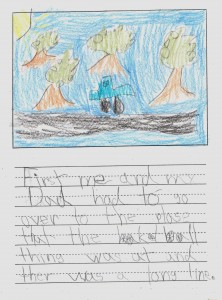 First me and my
Dad had to go
over to the place
that the ball
thing was at and
ther was a long line.